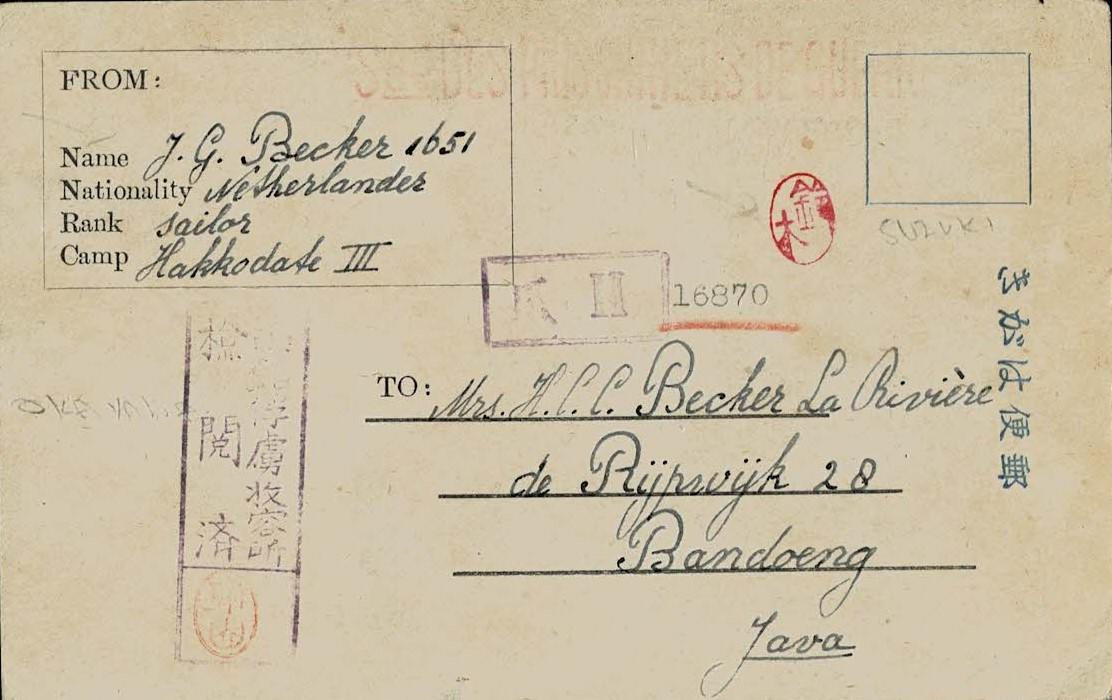 FROM:
Name J. G. Becker 1651
Nationality Netherlander
Rank sailor
Camp Hakkodate III
鈴木
SUZUKI
K H
16870
郵便はがき
俘虜收容所
檢閲済
TO: Mrs. H.C.C. Becker La Rivière
de Rijpwijk 28
Bandoeng
Java